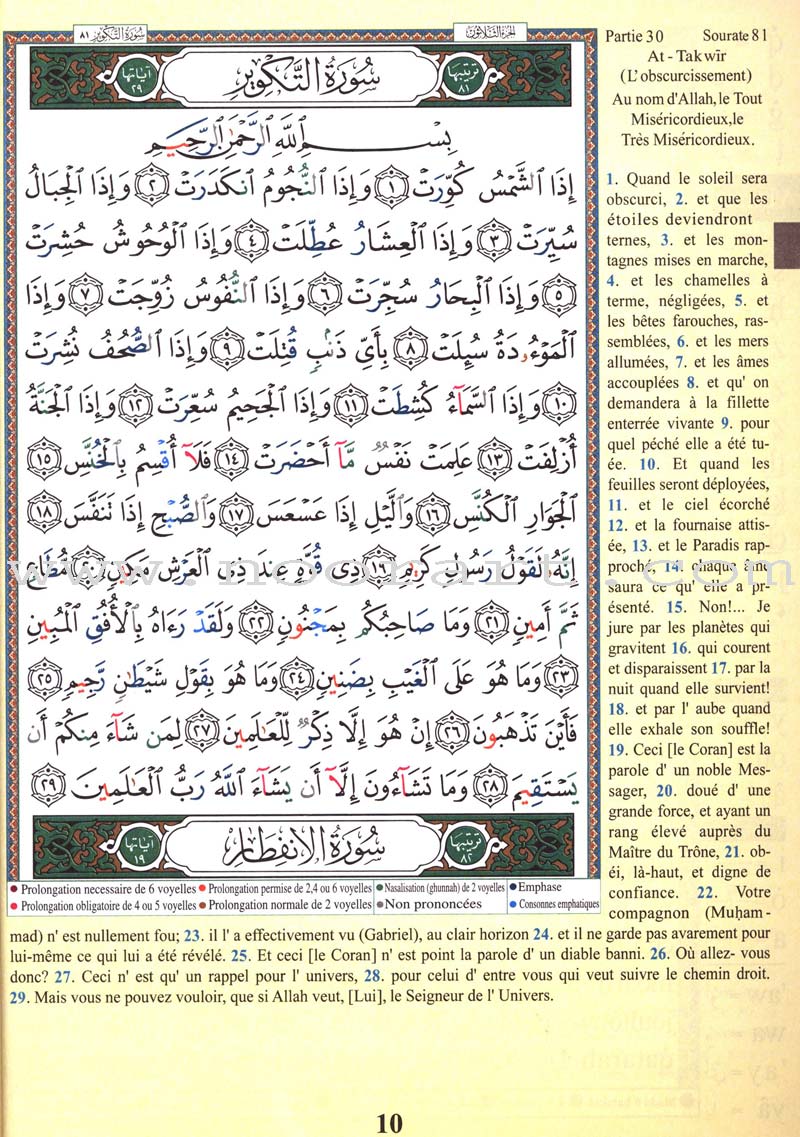 سورة التكوير ٨١
الجزء الثلاثون
ترتيبها ٨١
سُورَةُ التَّكْوِيرِ
آياتها ٢٩
بِسْمِ ٱللَّهِ ٱلرَّحْمَٰنِ ٱلرَّحِيمِ
إِذَا ٱلشَّمْسُ كُوِّرَتْ ١ وَإِذَا ٱلنُّجُومُ ٱنكَدَرَتْ ٢ وَإِذَا ٱلْجِبَالُ
سُيِّرَتْ ٣ وَإِذَا ٱلْعِشَارُ عُطِّلَتْ ٤ وَإِذَا ٱلْوُحُوشُ حُشِرَتْ
٥ وَإِذَا ٱلْبِحَارُ سُجِّرَتْ ٦ وَإِذَا ٱلنُّفُوسُ زُوِّجَتْ ٧ وَإِذَا
ٱلْمَوْءُۥدَةُ سُئِلَتْ ٨ بِأَىِّ ذَنۢبٍ قُتِلَتْ ٩ وَإِذَا ٱلصُّحُفُ نُشِرَتْ
١٠ وَإِذَا ٱلسَّمَآءُ كُشِطَتْ ١١ وَإِذَا ٱلْجَحِيمُ سُعِّرَتْ ١٢ وَإِذَا ٱلْجَنَّةُ
أُزْلِفَتْ ١٣ عَلِمَتْ نَفْسٌ مَّآ أَحْضَرَتْ ١٤ فَلَآ أُقْسِمُ بِٱلْخُنَّسِ ١٥
ٱلْجَوَارِ ٱلْكُنَّسِ ١٦ وَٱلَّيْلِ إِذَا عَسْعَسَ ١٧ وَٱلصُّبْحِ إِذَا تَنَفَّسَ ١٨
إِنَّهُۥ لَقَوْلُ رَسُولٍ كَرِيمٍ ١٩ ذِى قُوَّةٍ عِندَ ذِى ٱلْعَرْشِ مَكِينٍ ٢٠ مُّطَاعٍ
ثَمَّ أَمِينٍ ٢١ وَمَا صَاحِبُكُم بِمَجْنُونٍ ٢٢ وَلَقَدْ رَءَاهُ بِٱلْأُفُقِ ٱلْمُبِينِ
٢٣ وَمَا هُوَ عَلَى ٱلْغَيْبِ بِضَنِينٍ ٢٤ وَمَا هُوَ بِقَوْلِ شَيْطَٰنٍ رَّجِيمٍ ٢٥
فَأَيْنَ تَذْهَبُونَ ٢٦ إِنْ هُوَ إِلَّا ذِكْرٌ لِّلْعَٰلَمِينَ ٢٧ لِمَن شَآءَ مِنكُمْ أَن
يَسْتَقِيمَ ٢٨ وَمَا تَشَآءُونَ إِلَّآ أَن يَشَآءَ ٱللَّهُ رَبُّ ٱلْعَٰلَمِينَ ٢٩
ترتيبها ٨٢
سُورَةُ الانفِطَارِ
آياتها ١٩
Prolongation necessaire de 6 voyelles Prolongation permise de 2,4 ou 6 voyelles Nasalisation (ghunnah) de 2 voyelles Emphase
Prolongation obligatoire de 4 ou 5 voyelles Prolongation normale de 2 voyelles Non prononcées Consonnes emphatiques
Partie 30 Sourate 81
At - Takwīr
(L' obscurcissement)
Au nom d'Allah, le Tout
Miséricordieux,le
Très Miséricordieux.
1. Quand le soleil sera
obscurci, 2. et que les
étoiles deviendront
ternes, 3. et les mon-
tagnes mises en marche,
4. et les chamelles à
terme, négligées, 5. et
les bêtes farouches, ras-
semblées, 6. et les mers
allumées, 7. et les âmes
accouplées 8. et qu' on
demandera à la fillette
enterrée vivante 9. pour
quel péché elle a été tu-
ée. 10. Et quand les
feuilles seront déployées,
11. et le ciel écorché
12. et la fournaise attis-
ée, 13. et le Paradis rap-
proché, 14. chaque âme
saura ce qu' elle a pr-
ésenté. 15. Non!... Je
jure par les planètes qui
gravitent 16. qui courent
et disparaissent 17. par la
nuit quand elle survient!
18. et par l' aube quand
elle exhale son souffle!
19. Ceci [le Coran] est la
parole d' un noble Mes-
sager, 20. doué d' une
grande force, et ayant un
rang élevé auprès du
Maître du Trône, 21. ob-
éi, là-haut, et digne de
confiance. 22. Votre
compagnon (Muḥam-
mad) n' est nullement fou; 23. il l' a effectivement vu (Gabriel), au clair horizon 24. et il ne garde pas avarement pour
lui-même ce qui lui a été révélé. 25. Et ceci [le Coran] n' est point la parole d' un diable banni. 26. Où allez- vous
donc? 27. Ceci n' est qu' un rappel pour l' univers, 28. pour celui d' entre vous qui veut suivre le chemin droit.
29. Mais vous ne pouvez vouloir, que si Allah veut, [Lui], le Seigneur de l' Univers.
www.noorart.com
10